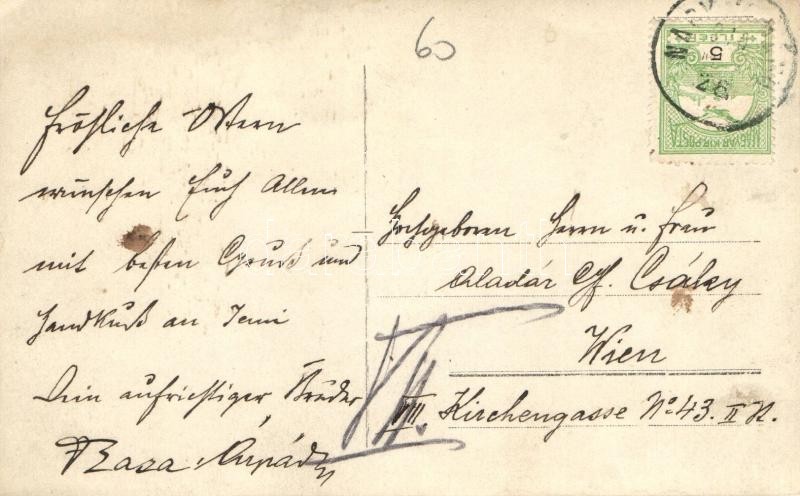 60
MAGYAR KIR. POSTA
5
FILLÉR
Fröhliche Ostern
wünschen Euch Allen
mit besten Gruß und
Handkuß an Jeni
Dein aufrichtiger Bruder
Árpád
Hochgeboren Herrn u. Frau
Aladár Gf. Csáky
Wien
VIII. Kirchengasse No. 43. II St.
VII.